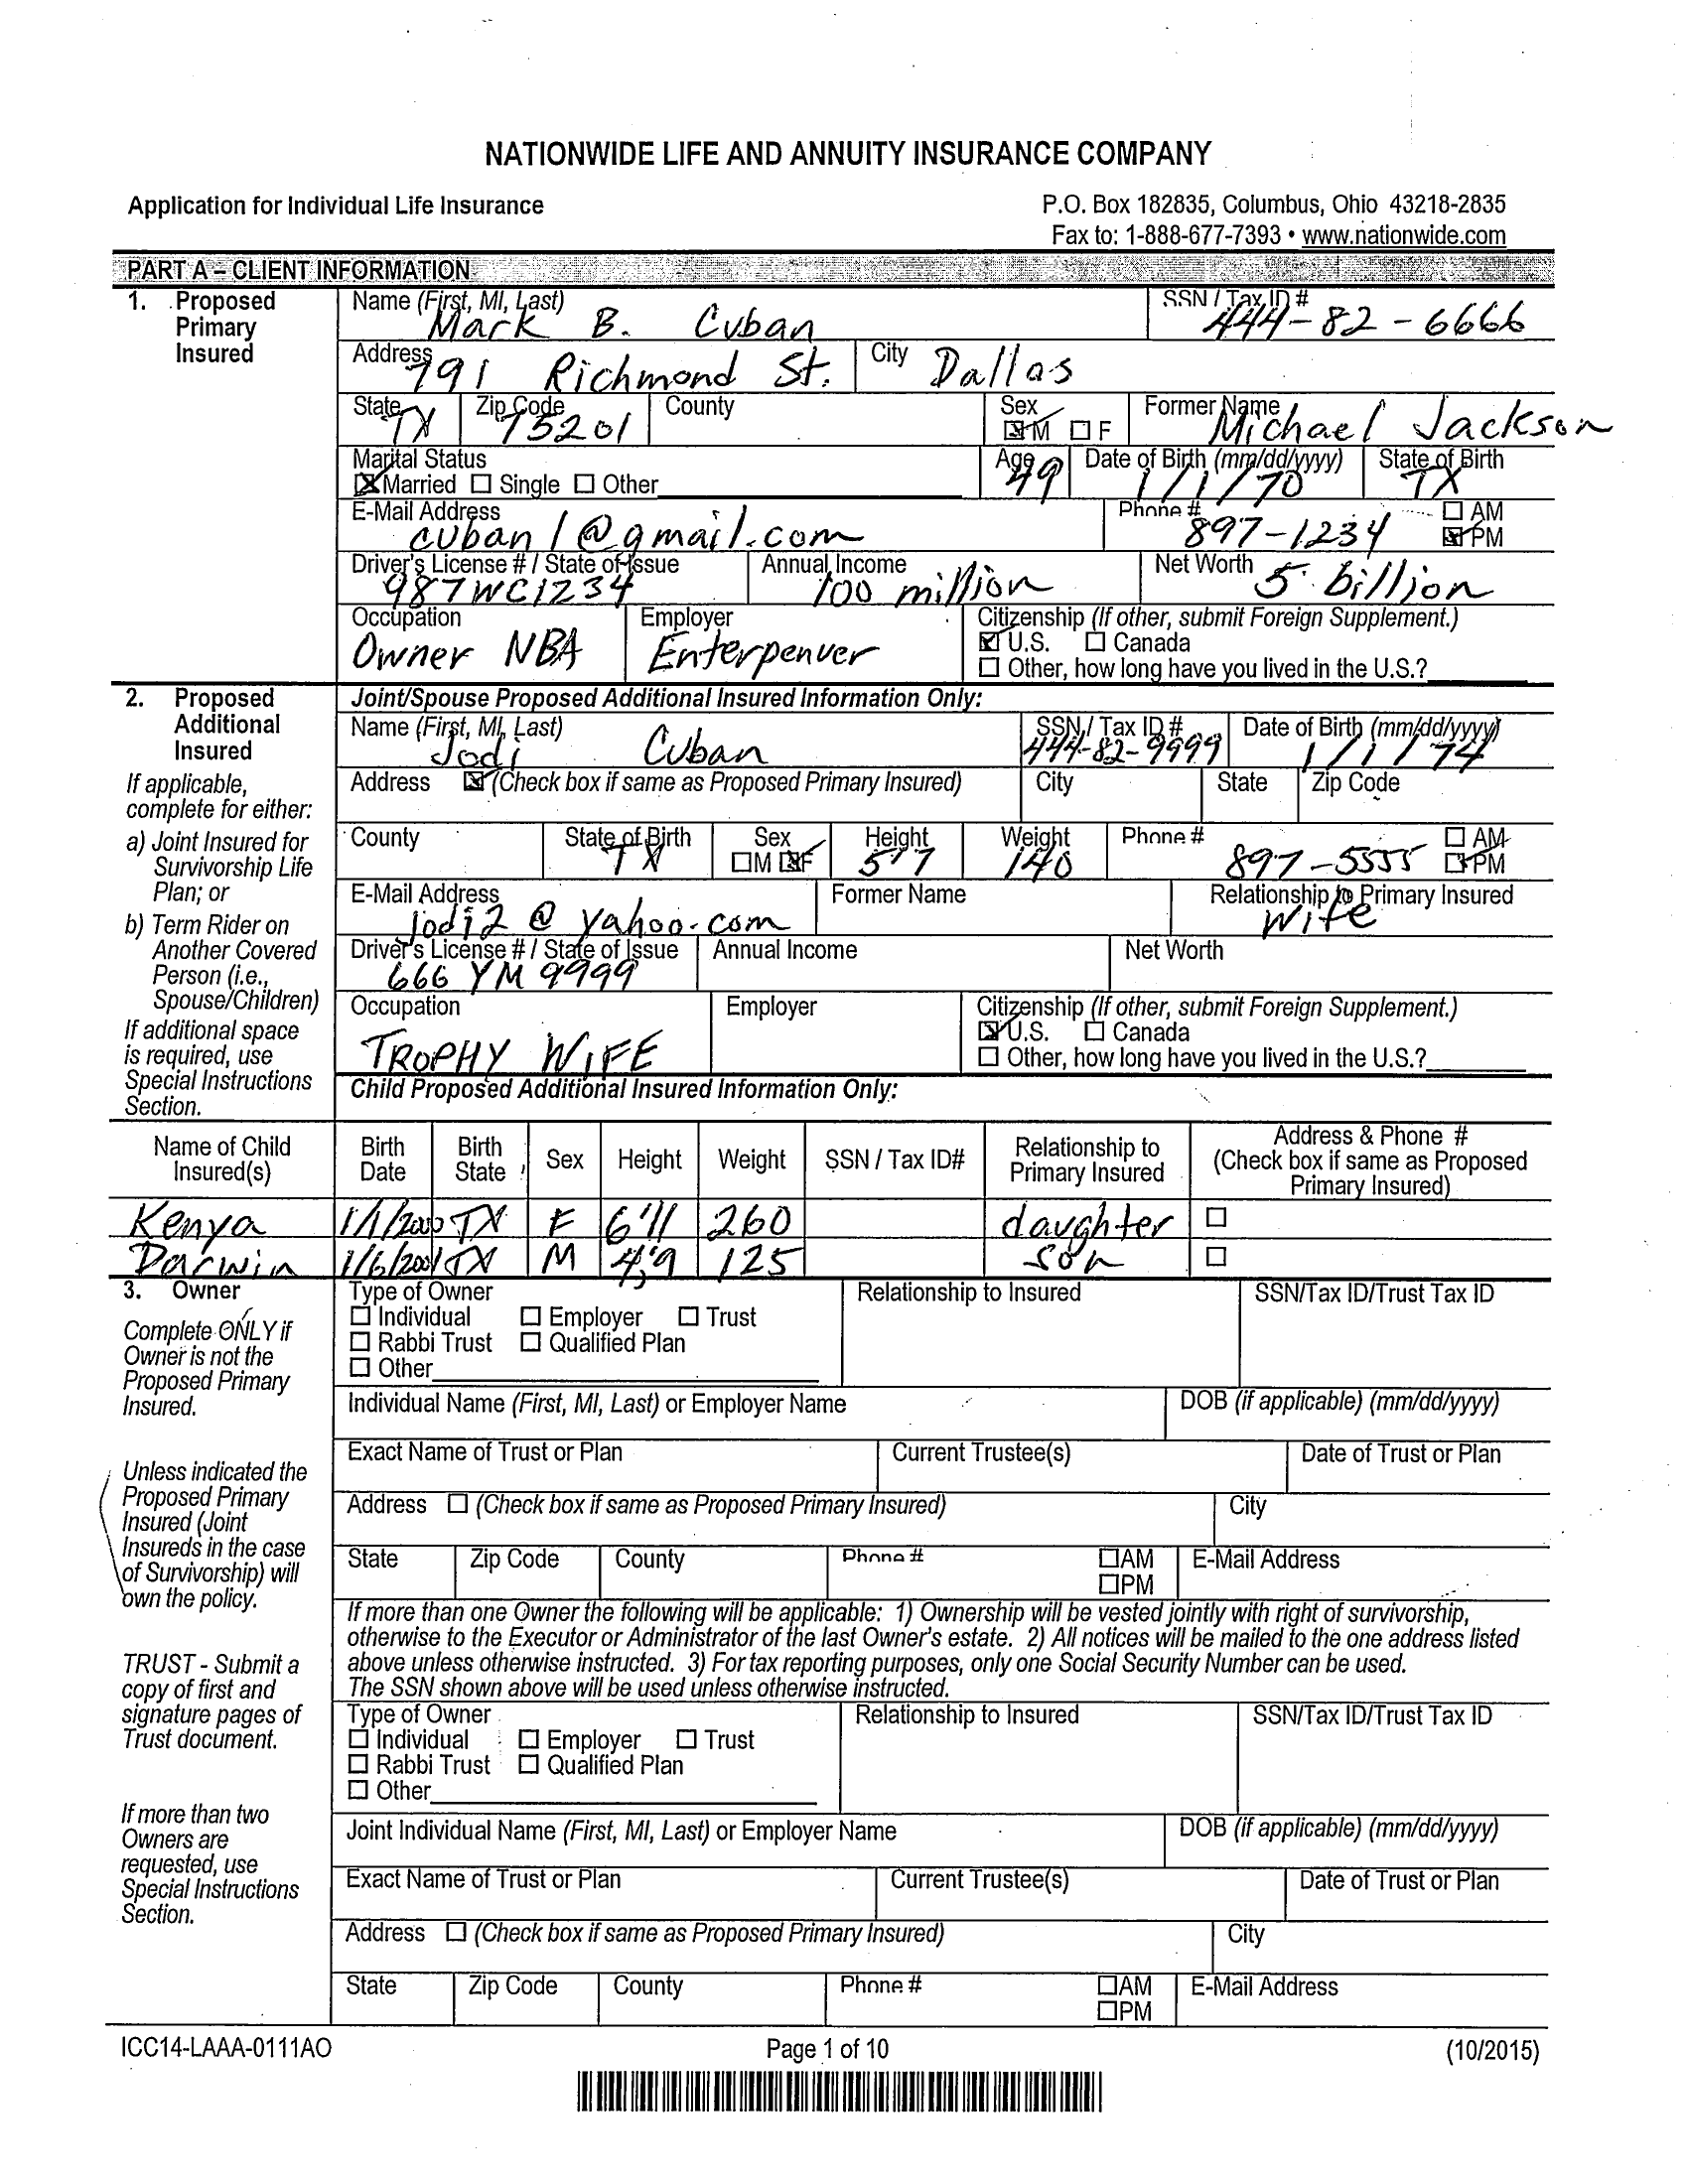 NATIONWIDE LIFE AND ANNUITY INSURANCE COMPANY
Application for Individual Life Insurance
P.O. Box 182835, Columbus, Ohio 43218-2835
Fax to: 1-888-677-7393 • www.nationwide.com
PART A – CLIENT INFORMATION
1. Proposed Primary Insured
Name (First, MI, Last) Mark B. Cuban
SSN / Tax ID # 444-82-6666
Address 791 Richmond St.
City Dallas
State TX
Zip Code 75201
County
Sex ☒ M ☐ F
Former Name Michael Jackson
Marital Status
☒ Married ☐ Single ☐ Other
Age 49
Date of Birth (mm/dd/yyyy) 1/1/70
State of Birth TX
E-Mail Address cuban1@gmail.com
Phone # 897-1234 ☐ AM ☒ PM
Driver's License # / State of Issue 987WC1234
Annual Income 100 million
Net Worth 5 billion
Occupation Owner NBA
Employer Enterpenuer
Citizenship (If other, submit Foreign Supplement.)
☒ U.S. ☐ Canada
☐ Other, how long have you lived in the U.S.?
2. Proposed Additional Insured
If applicable, complete for either:
a) Joint Insured for Survivorship Life Plan; or
b) Term Rider on Another Covered Person (i.e., Spouse/Children)
If additional space is required, use Special Instructions Section.
Joint/Spouse Proposed Additional Insured Information Only:
Name (First, MI, Last) Jodi Cuban
SSN / Tax ID # 444-82-9999
Date of Birth (mm/dd/yyyy) 1/1/74
Address ☒ (Check box if same as Proposed Primary Insured)
City
State
Zip Code
County
State of Birth TX
Sex ☐ M ☒ F
Height 5'7
Weight 140
Phone # 897-5555 ☐ AM ☒ PM
E-Mail Address jodi2@yahoo.com
Former Name
Relationship to Primary Insured Wife
Driver's License # / State of Issue 666 YM 9999
Annual Income
Net Worth
Occupation TROPHY WIFE
Employer
Citizenship (If other, submit Foreign Supplement.)
☒ U.S. ☐ Canada
☐ Other, how long have you lived in the U.S.?
Child Proposed Additional Insured Information Only:
Name of Child Insured(s) Birth Date Birth State Sex Height Weight SSN / Tax ID# Relationship to Primary Insured Address & Phone # (Check box if same as Proposed Primary Insured)
Kenya 1/1/2000 TX F 6'11 260 daughter ☐
Darwin 1/6/2001 TX M 4'9 125 son ☐
3. Owner
Complete ONLY if Owner is not the Proposed Primary Insured.
Unless indicated the Proposed Primary Insured (Joint Insureds in the case of Survivorship) will own the policy.
TRUST - Submit a copy of first and signature pages of Trust document.
If more than two Owners are requested, use Special Instructions Section.
Type of Owner
☐ Individual ☐ Employer ☐ Trust
☐ Rabbi Trust ☐ Qualified Plan
☐ Other
Relationship to Insured
SSN/Tax ID/Trust Tax ID
Individual Name (First, MI, Last) or Employer Name
DOB (if applicable) (mm/dd/yyyy)
Exact Name of Trust or Plan
Current Trustee(s)
Date of Trust or Plan
Address ☐ (Check box if same as Proposed Primary Insured)
City
State
Zip Code
County
Phone # ☐ AM ☐ PM
E-Mail Address
If more than one Owner the following will be applicable: 1) Ownership will be vested jointly with right of survivorship,
otherwise to the Executor or Administrator of the last Owner's estate. 2) All notices will be mailed to the one address listed
above unless otherwise instructed. 3) For tax reporting purposes, only one Social Security Number can be used.
The SSN shown above will be used unless otherwise instructed.
Type of Owner
☐ Individual ☐ Employer ☐ Trust
☐ Rabbi Trust ☐ Qualified Plan
☐ Other
Relationship to Insured
SSN/Tax ID/Trust Tax ID
Joint Individual Name (First, MI, Last) or Employer Name
DOB (if applicable) (mm/dd/yyyy)
Exact Name of Trust or Plan
Current Trustee(s)
Date of Trust or Plan
Address ☐ (Check box if same as Proposed Primary Insured)
City
State
Zip Code
County
Phone # ☐ AM ☐ PM
E-Mail Address
ICC14-LAAA-0111AO
Page 1 of 10
(10/2015)